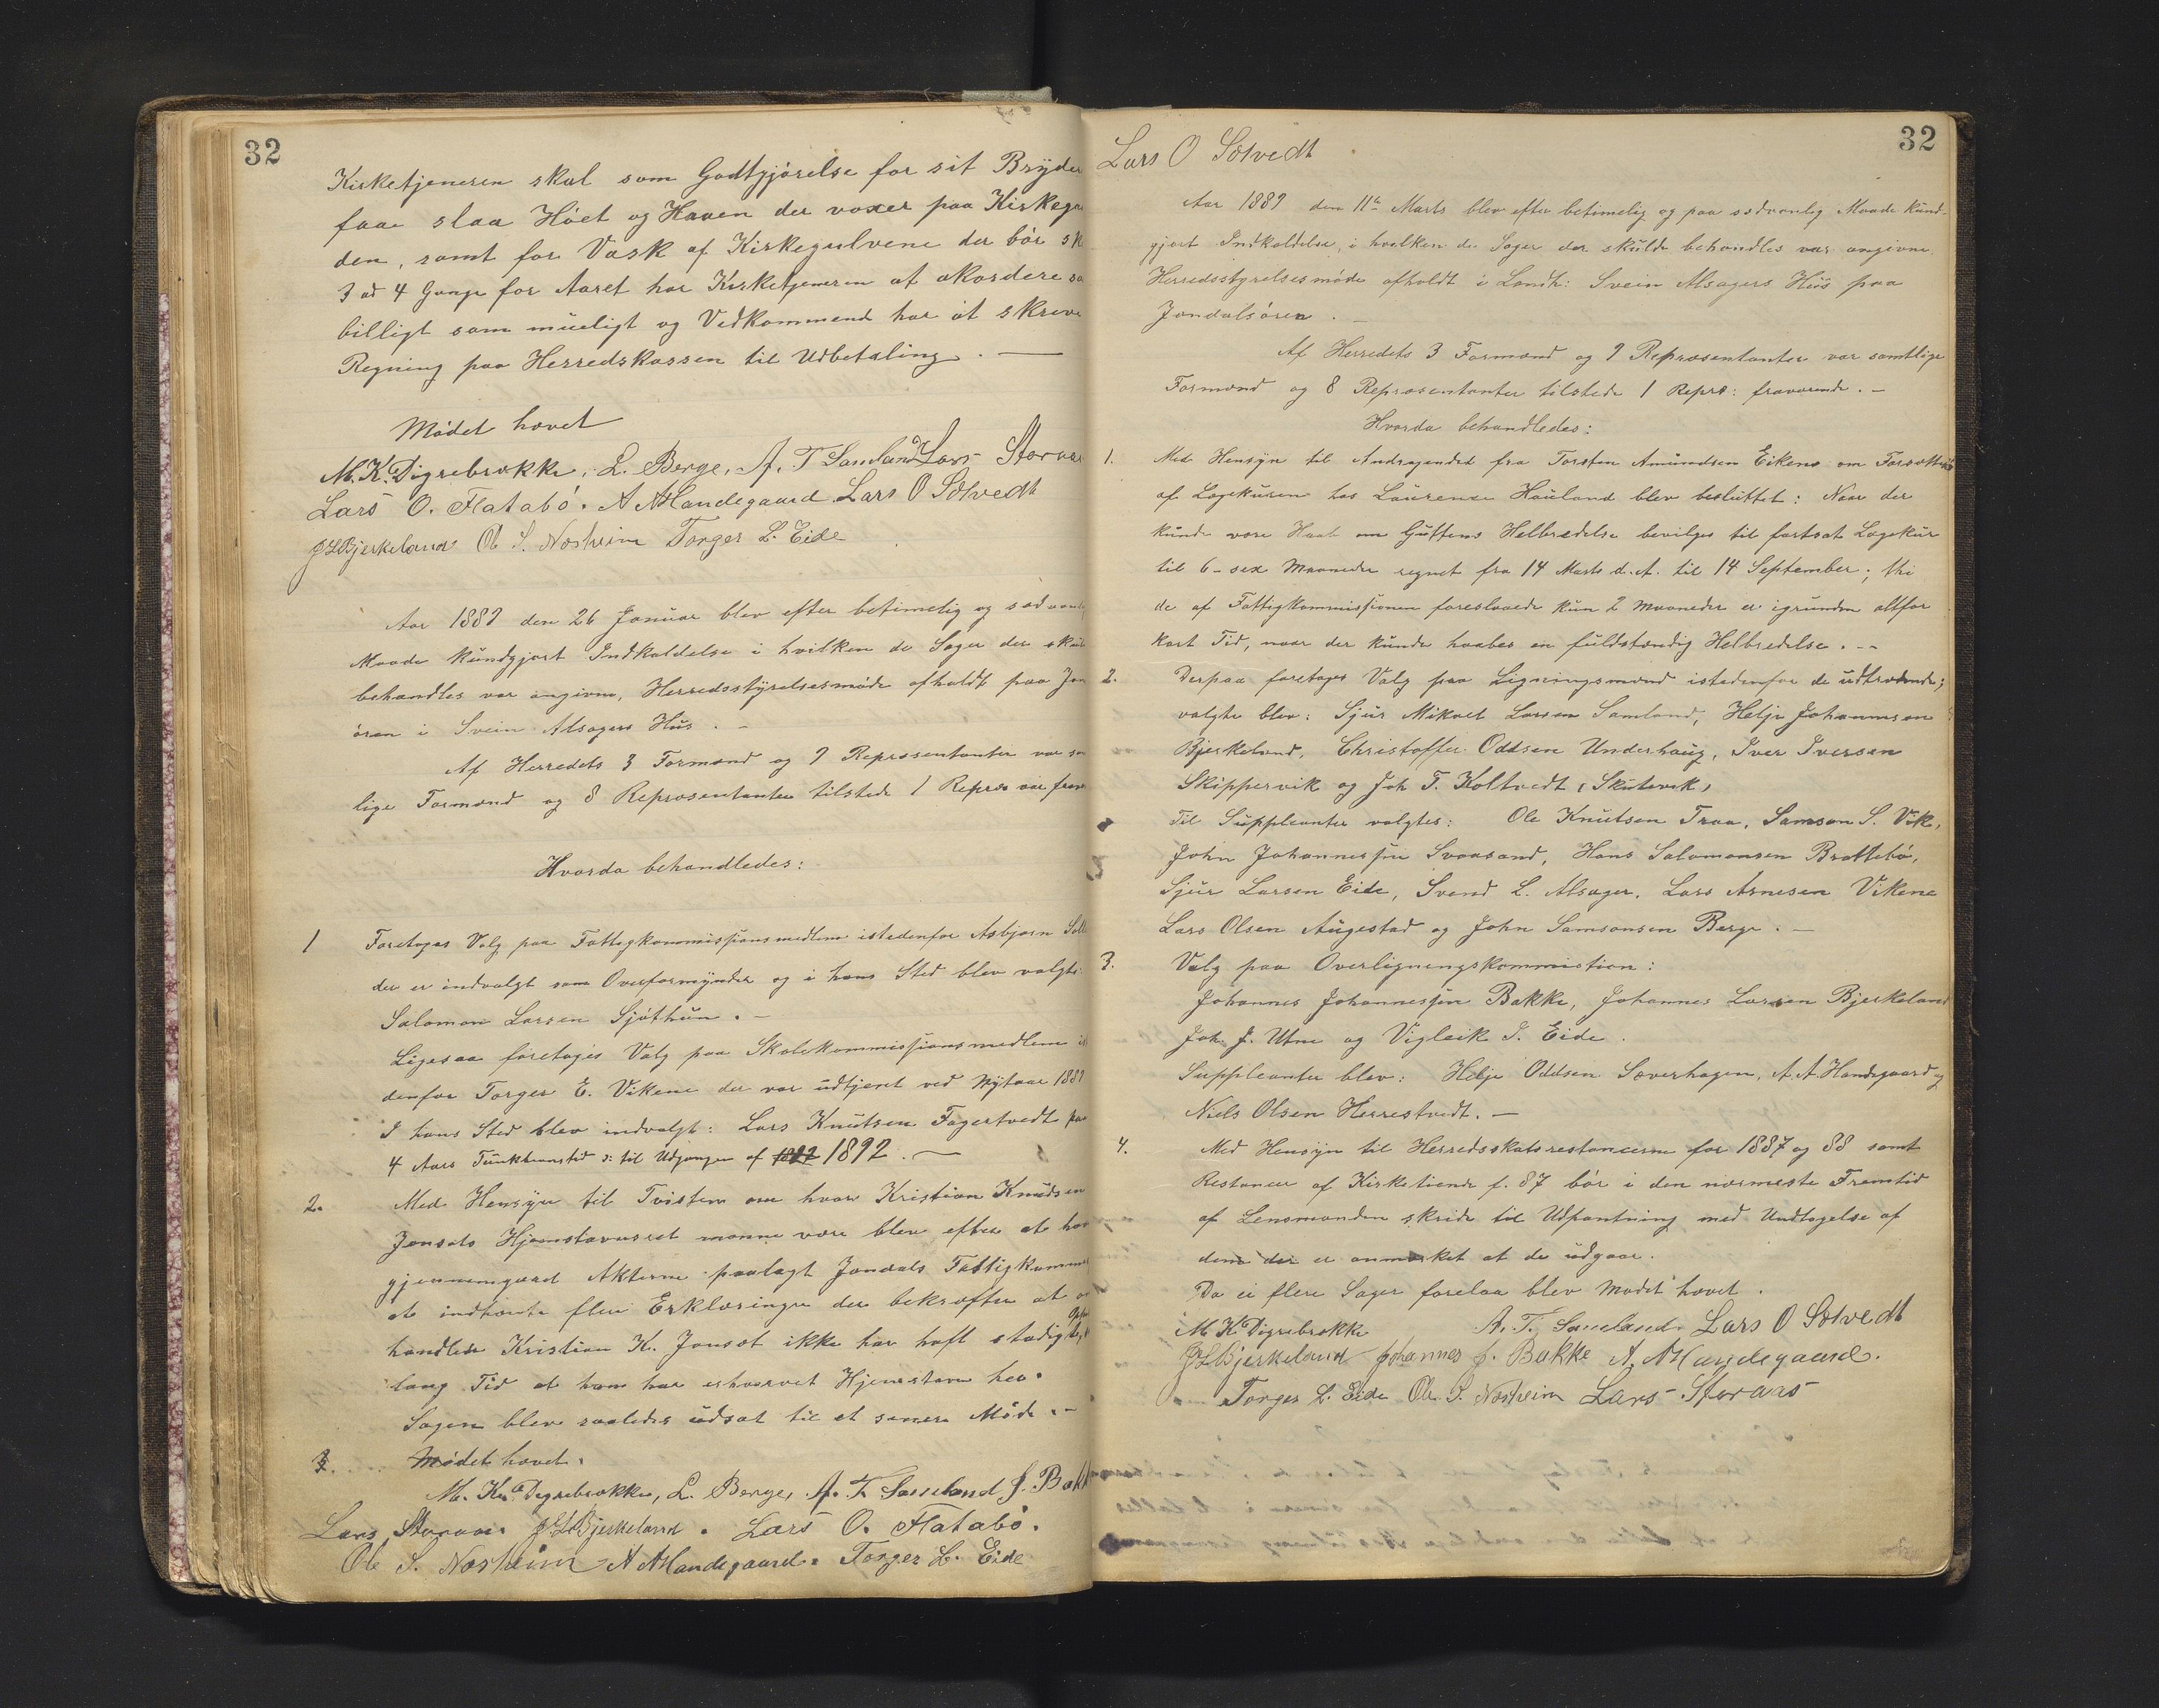 32
Kirketjeneren skal som Godtgjórelse for sit Bryder
faae slaa Hóet og Haaen der voxer paa Kirkega
den, samt for Vask af Kirkegulvene der bór sk
3 ad 4 Gange for Aaret har Kirketjeneren at akordere sa
billigt som mueligt og Vedkommend har at skreve
Regning paa Herredskassen til Udbetaling. —
Módet hævet
M. K. Digrebrække, L. Berge, A. T. Samland Lars Storaas
Lars O. Flatabó. A A Handegaard Lars O Sølvedt
J L Bjerkeland Ol S. Næsheim Torger L. Eide
Aar 1889 den 26 Januar blev efter betimelig og sædvanlig
Maade kundgjort Indkaldelse i hvilken de Sager der skul
behandles var angivne, Herredsstyrelsesmóde afholdt paa Jon
óren i Svein Alsagers Hus. —
Af Herredets 3 Formænd og 9 Repræsentanter var sa
lige Formænd og 8 Repræsentanter tilstede 1 Repræs var frav
Hvorda behandledes:
1 Foretoges Valg paa Fattigkommissionsmedlem istedenfor Asbjørn
der er indvalgt som Overformynder og i hans Sted blev valgt:
Salomon Larsen Sjóthun. —
Ligesaa foretoges Valg paa Skolekommissionsmedlem i
denfor Torger E. Vikene der var udtjent ved Nytaar 1889
I hans Sted blev indvalgt: Lars Knutsen Fagertvedt paa
4 Aars Funktionstid ɔ: til Udgangen af 1892. —
2. Med Hensyn til Tvisten om hvor Kristian Knudsen
Jonsæts Hjemstavnsret monne være blev efter at ha
gjennemgaaed Akterne paalagt Jondals Fattigkomm
at indhente flere Erklæringer der bekræfter at
handlede Kristian K. Jonsæt ikke har haft stadigt Oph
lang Tid at han har erhvervet Hjemstavn her.
Sagen blev saaledes udsat til et senere Móde. —
3. Módet hævet.
M. K. Digrebrække, L. Berge, A. T. Samland J. Bakk
Lars Storaas. J L Bjerkeland. Lars O. Flatabó.
Ole S. Næsheim A A Handegaard. Torger L. Eide
32
Lars O Sølvedt
Aar 1889 den 11te Marts blev efter betimelig og paa sædvanlig Maade kund-
gjort Indkaldelse, i hvilken de Sager der skulde behandles var angivne
Herredsstyrelsesmóde afholdt i Landh: Svein Alsagers Hus paa
Jondalsóren. —
Af Herredets 3 Formænd og 9 Repræsentanter var samtlige
Formænd og 8 Repræsentanter tilstede 1 Repræ: fraværende. —
Hvorda behandledes:
1. Med Hensyn til Andragendet fra Torsten Amundsen Eikenæ om Forsættelse
af Lægekuren hos Laurence Hauland blev besluttet: Naar der
kunde være Haab om Guttens Helbredelse bevilges til fortsat Lægekur
til 6 – sex Maaneder regnet fra 14 Marts d. A. til 14 September; thi
de af Fattigkommissionen foreslaaede kun 2 Maaneder er igrunden altfor
kort Tid, naar der kunde haabes en fuldstændig Helbredelse. —
2. Derpaa foretoges Valg paa Ligningsmænd istedenfor de udtrædende;
valgte blev: Sjur Mikael Larsen Samland, Helje Johannesen
Bjerkeland, Christoffer Oddsen Underhaug, Iver Iversen
Skippervik og Joh T. Koltvedt (Skutevik)
Til Suppleanter valgtes: Ole Knutsen Traa, Samson S. Vik,
John Johannessen Svaasand, Hans Salomonsen Brattebó,
Sjur Larsen Eide, Svend L. Alsager, Lars Arnesen Vikene
Lars Olsen Augestad og John Samsonsen Berge. —
3. Valg paa Overligningskommistion:
Johannes Johannessen Bakke, Johannes Larsen Bjerkeland
Joh. J. Utne og Vigleik T. Eide.
Suppleanter blev: Helje Oddsen Sæverhagen, A. A. Handegaard og
Niels Olsen Herrestvedt. —
4. Med Hensyn til Herredsskatsrestancerne for 1887 og 88 samt
Restancer af Kirketiende f. 87 bór i den nærmeste Fremtid
af Lensmanden skride til Udpantning med Undtagelse af
dem der er anmærket at de udgaar.
Da ei flere Sager forelaa blev Mødet hævet.
M K Digrebrække A. T. Samland. Lars O Sølvedt
J L Bjerkeland Johannes J. Bakke A. A Handegaard.
Torger L. Eide Ole S. Næsheim Lars Storaas